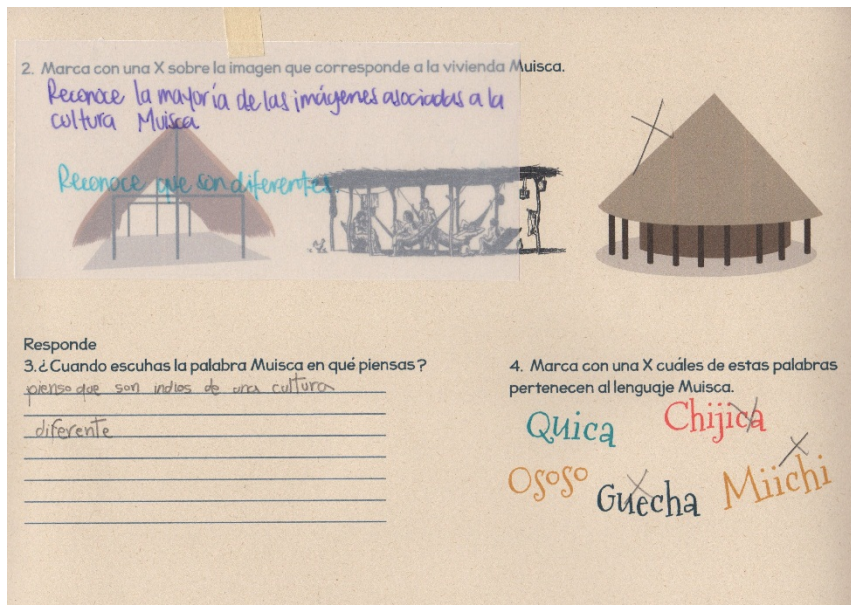 2. Marca con una X sobre la imagen que corresponde a la vivienda Muisca.
Reconoce la mayoría de las imágenes asociadas a la
cultura Muisca
Reconoce que son diferentes
Responde
3.¿Cuando escuhas la palabra Muisca en qué piensas?
pienso que son indios de una cultura
diferente
4. Marca con una X cuáles de estas palabras
pertenecen al lenguaje Muisca.
Quica Chijica
Ososo Guecha Miichi